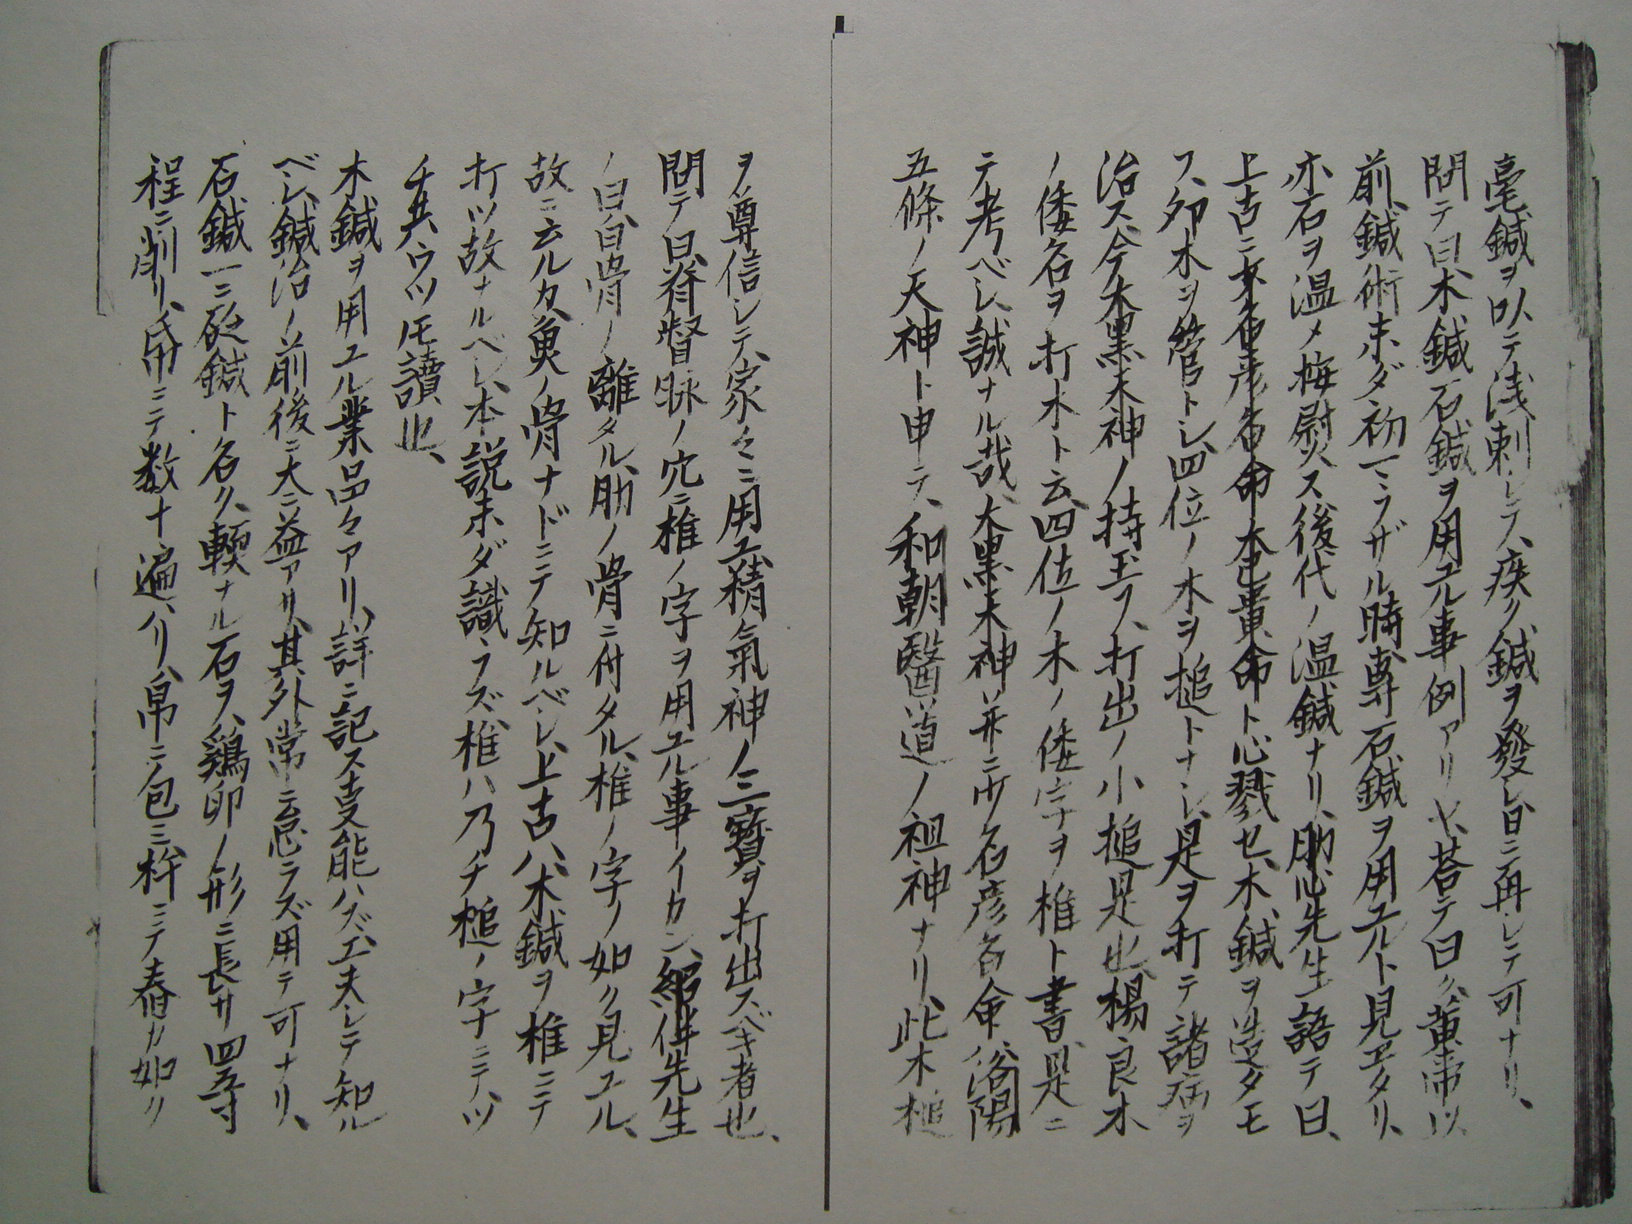 毫鍼ヲ以テ浅刺レス、疾ク鍼ヲ發レ、日ニ再レテ可ナリ、
問テ曰、木鍼石鍼ヲ用エル事例アリヤ、荅テ曰ク、黄帝以
前、鍼術未ダ初マラザル時、専石鍼ヲ用エルト見エタリ、
亦石ヲ温メ梅慰ス、後代ノ温鍼ナリ、先生語テ曰、
上古ニ少名彦名命、大己貴命ト心戮セ、木鍼ヲ造タモ
フ、夘木ヲ管トシ、四位ノ木ヲ槌トナシ、是ヲ打テ諸病ヲ
治ス、今大黒天神ノ持玉フ、打出ノ小槌是也、楊良木
ノ倭名ヲ打木ト云、四位ノ木ノ倭字ヲ椎ト書、是ニ
テ考ベシ、誠ナル哉、大黒天神并ニ少名彦名命、洛陽
五條ノ天神ト申テ、和朝醫道ノ祖神ナリ、此木槌
ヲ尊信シテ、家々ニ用エ、精氣神ノ三寳ヲ打出スベキ者也、
問テ曰、脊督脉ノ穴ニ椎ノ字ヲ用エル事イカン、先生
ノ曰、脊骨ノ離タル、肋ノ骨ニ付タル、椎ノ字ノ如ク見エル、
故ニ云ルカ、魚ノ骨ナドニテ知ルベシ、上古ハ、木鍼ヲ椎ニテ
打ツ故ナルベシ、本説未ダ識ラズ、椎ハ乃チ槌ノ字ニテ、ツ
チ共ウツ𪜈讀也、
木鍼ヲ用エル業品々アリ、詳ニ記ス事能ハズ、工夫レテ知ル
ベシ、鍼治ノ前後ニ大ニ益アリ、其外常ニ怠ラズ用テ可ナリ、
石鍼一ニ砭鍼ト名ク、輭ナル石ヲ、鶏卵ノ形ニ長サ四五寸
程ニ削リ、帛ニテ数十遍ハリ、帛ニ包ミ杵ニテ舂カ如ク